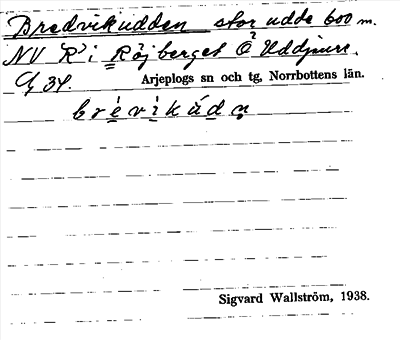 Bredvikudden stor udde 600 m.
NV R' i Röjberget Ö Uddjaur.
34. Arjeplogs sn och tg, Norrbottens län.
brèvikúdn
Sigvard Wallström, 1938.